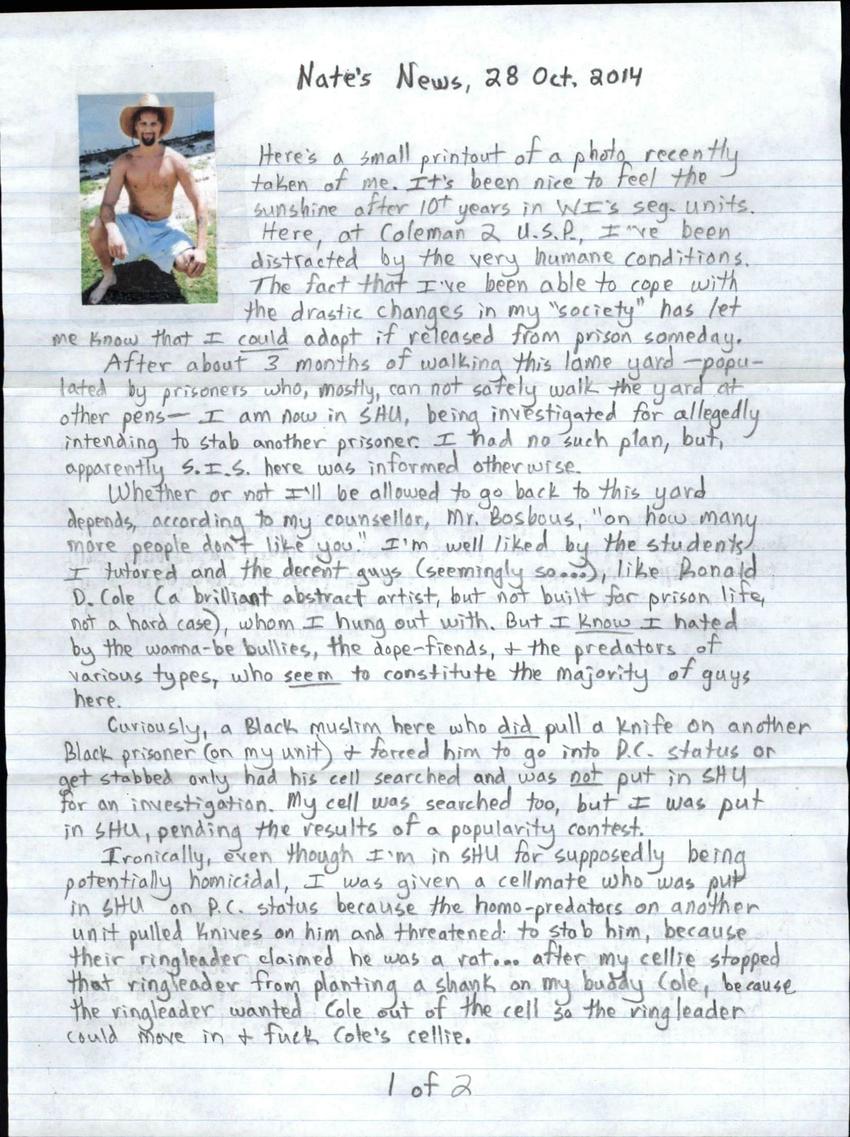 Nate's News, 28 Oct. 2014
Here's a small printout of a photo recently
taken of me. It's been nice to feel the
sunshine after 10+ years in WI's seg. units.
Here, at Coleman 2 U.S.P., I've been
distracted by the very humane conditions.
The fact that I've been able to cope with
the drastic changes in my "society" has let
me know that I could adapt if released from prison someday.
After about 3 months of walking this lame yard —popu-
lated by prisoners who, mostly, can not safely walk the yard at
other pens— I am now in SHU, being investigated for allegedly
intending to stab another prisoner. I had no such plan, but,
apparently S.I.S. here was informed otherwise.
Whether or not I'll be allowed to go back to this yard
depends, according to my counsellor, Mr. Bosbous, "on how many
more people don't like you." I'm well liked by the students
I tutored and the decent guys (seemingly so...), like Ronald
D. Cole (a brilliant abstract artist, but not built for prison life,
not a hard case), whom I hung out with. But I know I hated
by the wanna-be bullies, the dope-fiends, + the predators of
various types, who seem to constitute the majority of guys
here.
Curiously, a Black muslim here who did pull a knife on another
Black prisoner (on my unit) + forced him to go into P.C. status or
get stabbed only had his cell searched and was not put in SHU
for an investigation. My cell was searched too, but I was put
in SHU, pending the results of a popularity contest.
Ironically, even though I'm in SHU for supposedly being
potentially homicidal, I was given a cellmate who was put
in SHU on P.C. status because the homo-predators on another
unit pulled knives on him and threatened to stab him, because
their ringleader claimed he was a rat... after my cellie stopped
that ringleader from planting a shank on my buddy Cole, because
the ringleader wanted Cole out of the cell so the ringleader
could move in + fuck Cole's cellie.
1 of 2